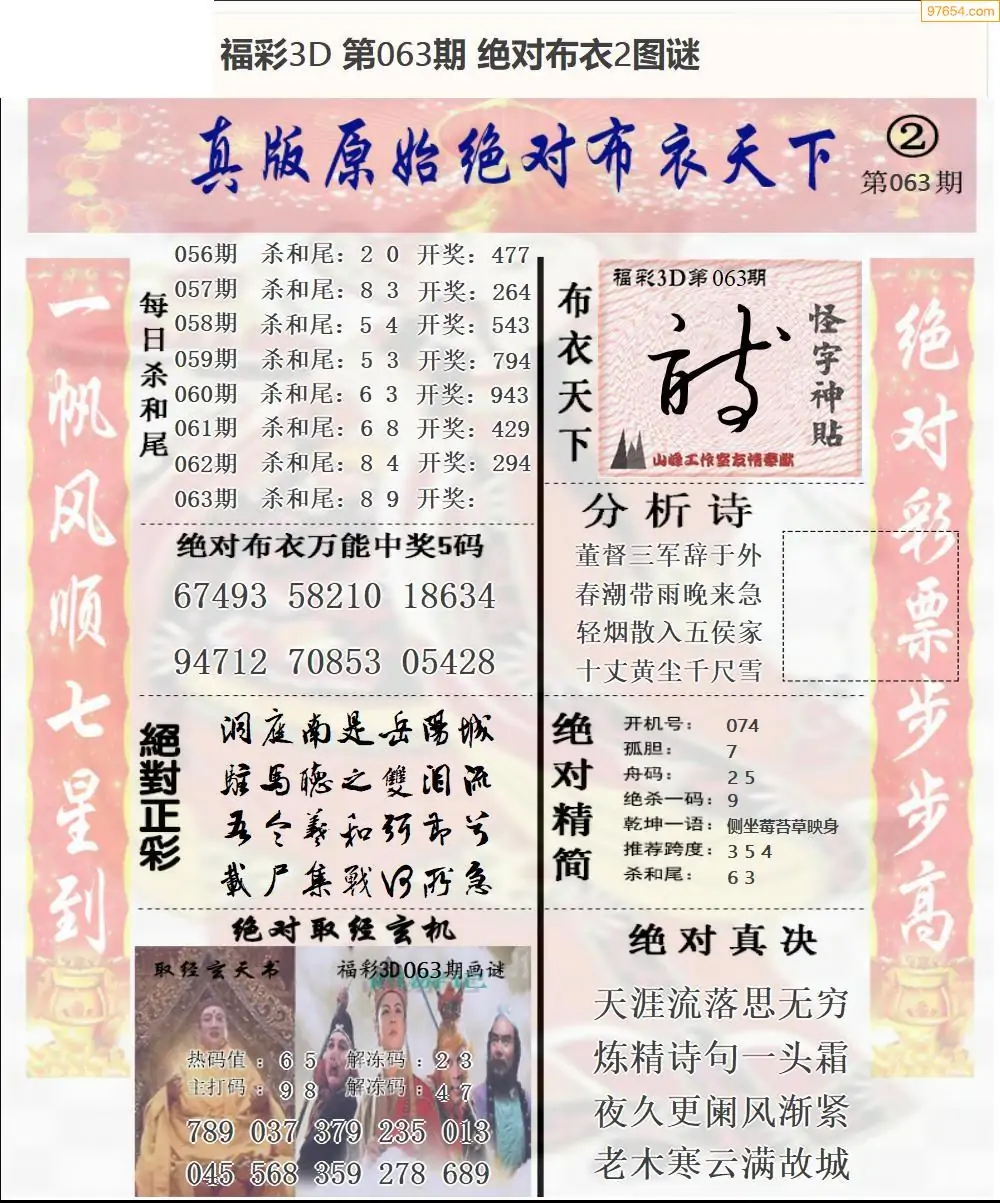 97654.com
福彩3D 第063期 绝对布衣2图谜
真版原始绝对布衣天下
②
第063期
一帆风顺七星到
每日杀和尾
056期 杀和尾：2 0 开奖：477
057期 杀和尾：8 3 开奖：264
058期 杀和尾：5 4 开奖：543
059期 杀和尾：5 3 开奖：794
060期 杀和尾：6 3 开奖：943
061期 杀和尾：6 8 开奖：429
062期 杀和尾：8 4 开奖：294
063期 杀和尾：8 9 开奖：
绝对布衣万能中奖5码
67493 58210 18634
94712 70853 05428
絕對正彩
洞庭南是岳陽城
駐馬聽之雙泪流
吾令羲和弭节兮
載尸集戰河所急
绝对取经玄机
取经玄天书
福彩3D063期画谜
热码值：6 5 解冻码：2 3
主打码：9 8 解冻码：4 7
789 037 379 235 013
045 568 359 278 689
布衣天下
福彩3D第063期
怪字神貼
山峰工作室友情奉献
分析诗
董督三军辞于外
春潮带雨晚来急
轻烟散入五侯家
十丈黄尘千尺雪
绝对精简
开机号： 074
孤胆： 7
舟码： 2 5
绝杀一码：9
乾坤一语：侧坐莓苔草映身
推荐跨度：3 5 4
杀和尾： 6 3
绝对真决
天涯流落思无穷
炼精诗句一头霜
夜久更阑风渐紧
老木寒云满故城
绝对彩票步步高